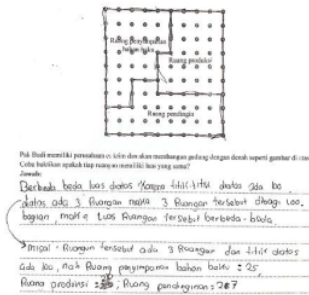 Ruang penyimpanan
bahan baku
Ruang produksi
Ruang pendingin
Pak Budi memiliki perusahaan es krim dan akan membangun gudang dengan denah seperti gambar di atas
Coba buktikan apakah tiap ruangan memiliki luas yang sama?
Jawab:
Berbeda beda luas diatas karena titik-titik diatas ada 100
diatas ada 3 Ruangan maka 3 Ruangan tersebut dibagi 100,
bagian, maka Luas Ruangan tersebut berbeda-beda
Misal - Ruangan tersebut ada 3 Ruangan dan titik diatas
ada 100, nah Ruang penyimpanan bahan baku = 25
Ruang produksi : ; Ruang pendinginan :